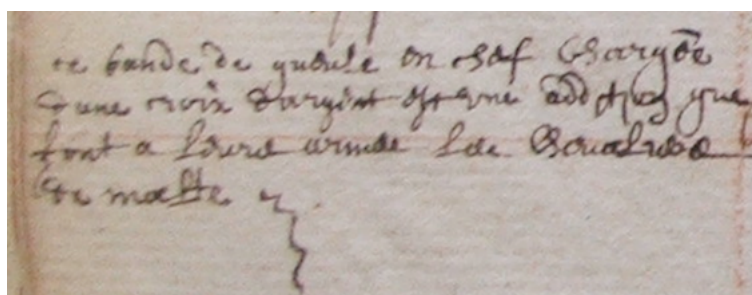 ce bande de gueule en chef Chargée
d'une croix d'argent et une que
font a leurs armes les Chevaliers
de malte